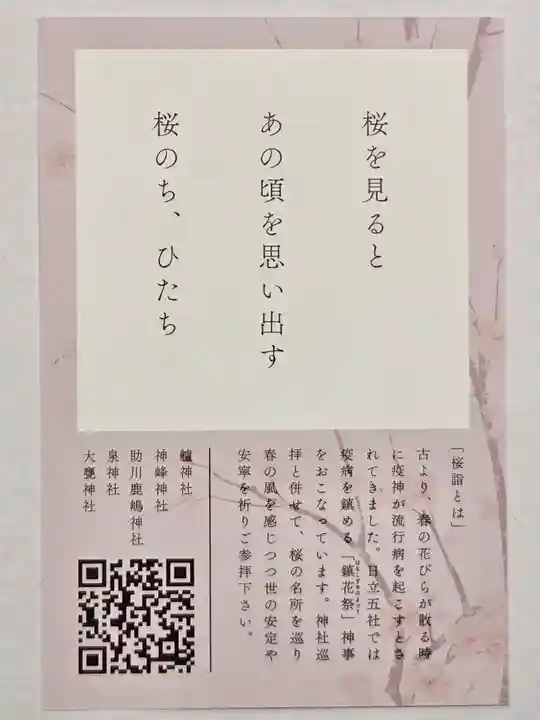 桜を見ると
あの頃を思い出す
桜のち、ひたち
「桜詣とは」
古より、春の花びらが散る時
に疫神が流行病を起こすとさ
れてきました。日立五社では
疫病を鎮める「鎮花祭」神事
をおこなっています。神社巡
拝と併せて、桜の名所を巡り
春の風を感じつつ世の安定や
安寧を祈りご参拝下さい。
艫神社
神峰神社
助川鹿嶋神社
泉神社
大甕神社